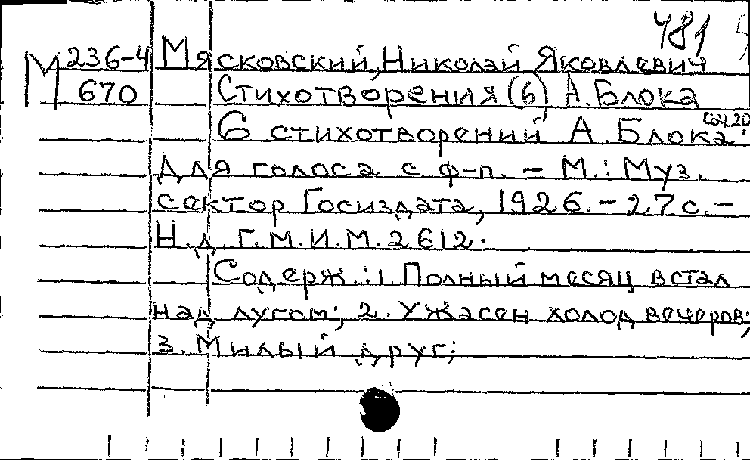 481
М 236-4 Мясковский, Николай Яковлевич
670 Стихотворения (6) А. Блока
6 стихотворений А. Блока. соч. 20
Для голоса с ф-п. – М.: Муз.
сектор Госиздата, 1926. – 27 с. –
Н.д. Г.М.И.М. 2612.
Содерж.: 1 Полный месяц встал
над лугом; 2. Ужасен холод вечеров;
3. Милый друг;